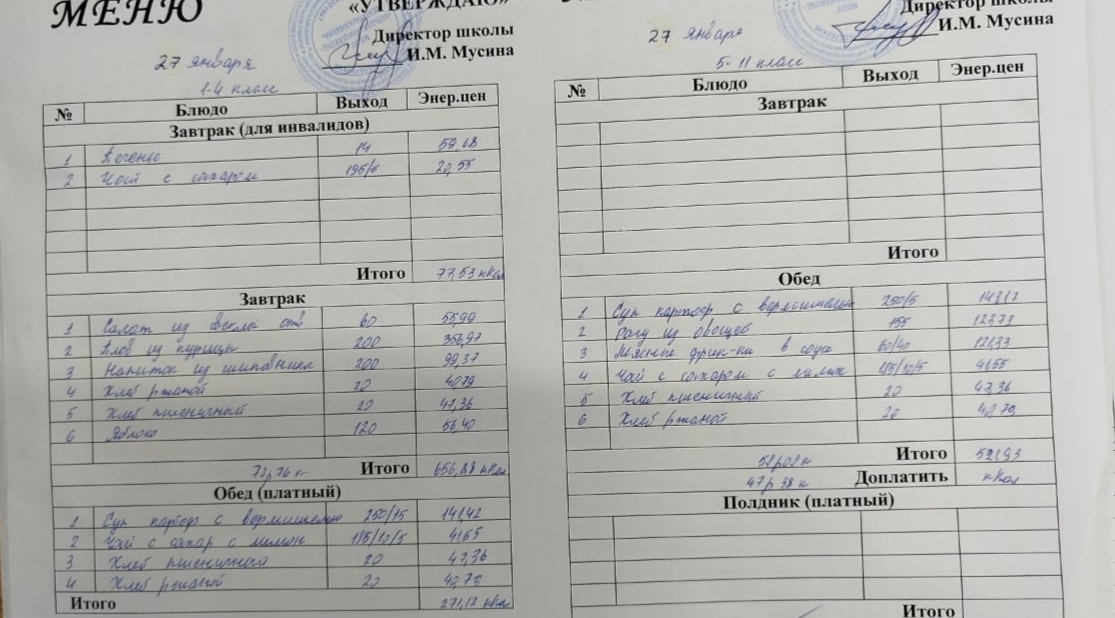 МЕНЮ
«УТВЕРЖДАЮ»
Директор школы
И.М. Мусина
27 января
1-4 класс
№ Блюдо Выход Энер.цен
Завтрак (для инвалидов)
1 Печенье 14 59,08
2 Чай с сахаром 195/5 20,55
Итого 77,53 кКал
Завтрак
1 Салат из свеклы отв 60 55,99
2 Плов из курицы 200 356,97
3 Напиток из шиповника 200 99,37
4 Хлеб ржаной 20 40,79
5 Хлеб пшеничный 20 47,36
6 Яблоко 120 56,40
73р 76 к Итого 656,88 кКал
Обед (платный)
1 Суп картоф с вермишелью 250/15 141,42
2 Чай с сахар с лимон 185/10/5 41,65
3 Хлеб пшеничный 20 47,36
4 Хлеб ржаной 20 40,79
Итого 271,12 кКал
Директор школы
И.М. Мусина
27 января
5-11 класс
№ Блюдо Выход Энер.цен
Завтрак
Итого
Обед
1 Суп картоф с вермишелью 250/5 148,17
2 Рагу из овощей 155 123,73
3 Мясные фрик-ки в соусе 60/40 121,33
4 Чай с сахаром с 185/10/5 41,65
5 Хлеб пшеничный 20 47,36
6 Хлеб ржаной 20 40,79
Итого 521,93
47р 38 к Доплатить кКал
Полдник (платный)
Итого